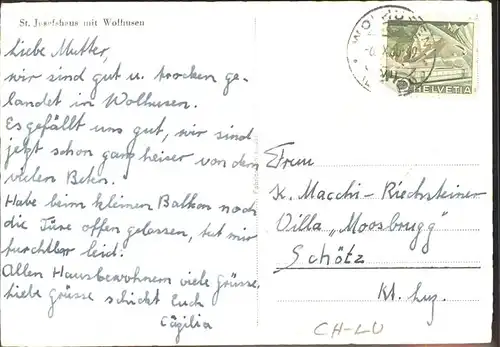 St. Josefshaus mit Wolhusen
Liebe Mutter,
wir sind gut u. trocken ge-
landet in Wolhusen.
Es gefällt uns gut, wir sind
jetzt schon ganz heiser von dem
vielen Beten.
Habe beim kleinen Balkon noch
die Türe offen gelassen, tut mir
furchtbar leid!
Allen Hausbewohnern viele Grüsse.
Liebe Grüsse schickt Euch
Cäzilia
WOLHUSEN
HELVETIA
Frau
K. Macchi-Riechsteiner
Villa „Moosbrugg"
Schötz
Kt. Luz.
CH-LU